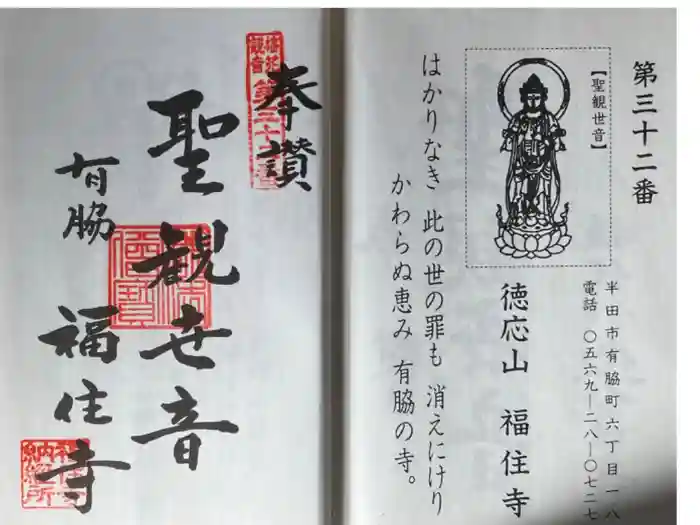 第三十二番
【聖観世音】
半田市有脇町六丁目一八
電話 〇五六九―二八―〇七二七
徳応山 福住寺
はかりなき 此の世の罪も 消えにけり
かわらぬ恵み 有脇の寺。
奉讃
聖観世音
有脇
福住寺
第三十二番
納経所